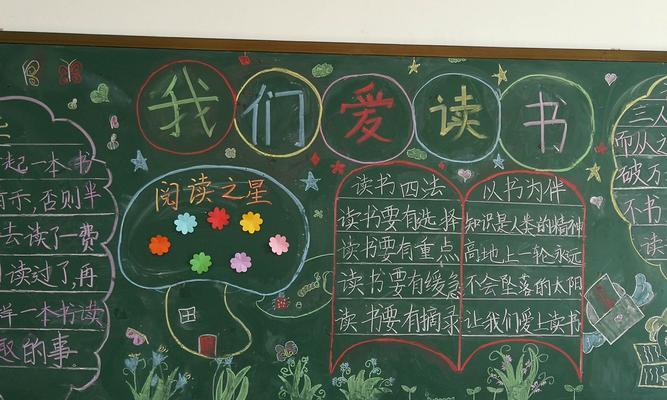 我们爱读书
起一本书
示，否则半
去读了一费
读过了，再
一本书读
的事
阅读之星
读书四法
读书要有选择
读书要有重点
读书要有缓急
读书要有摘录
以书为伴
知识是人类的精神
高地上一轮永远
不会坠落的太阳
让我们爱上读书
三人
而从
破万
不书
读